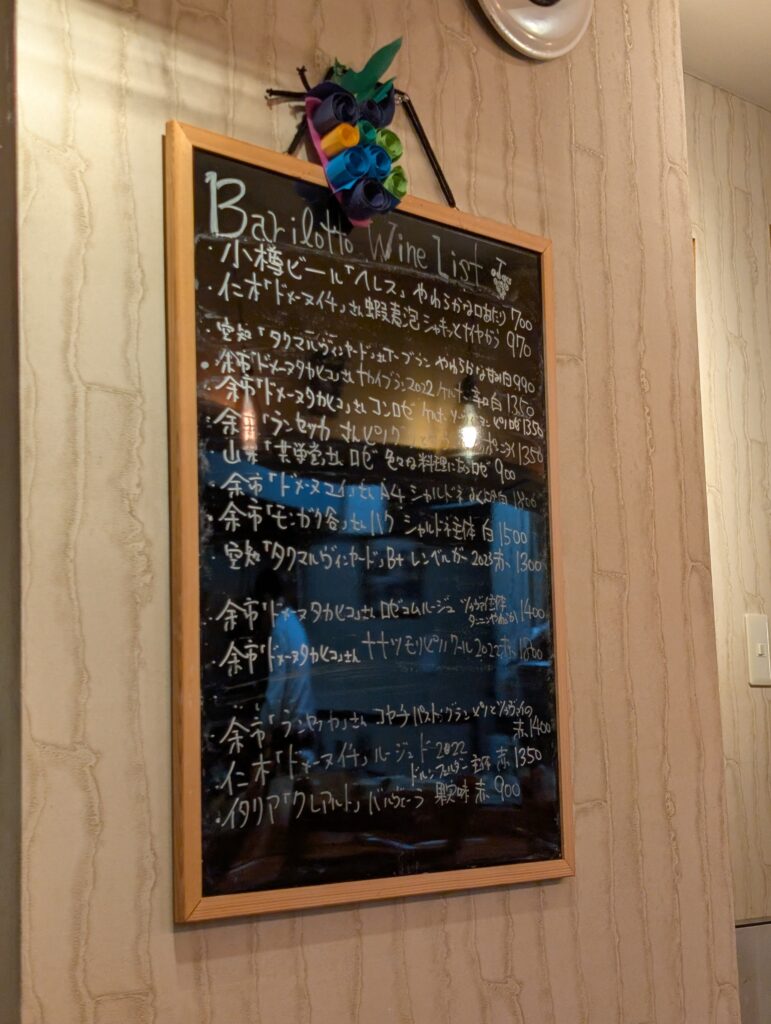 Barilotto Wine List
・小樽ビール「ヘレス」やわらかな口あたり 700
・仁木「ドメーヌイチ」さん 泡 970
・空知「タクマルヴィンヤード」 ブラン やわらかな 白 990
・余市「ドメーヌタカヒコ」さん ナカイブラン2022 ケルナー 辛口 白 1350
・余市「ドメーヌタカヒコ」さん コンロゼ ケルナー 1350
・余市「ランセッカ」さん ピノグ 1350
・山 さん ロゼ 色々な料理に ロゼ 900
・余市「ドメーヌコイ」さん A4 シャルドネ 白
・余市「モンガク谷」さん ハク シャルドネ主体 白 1500
・空知「タクマルヴィンヤード」B+ レンベルガー 赤 1300
・余市「ドメーヌタカヒコ」さん ロゼコムルージュ ツヴァイ主体
タンニンやわらか 1400
・余市「ドメーヌタカヒコ」さん ナナツモリピノノワール 赤 1800
・余市「ランセッカ」さん コヤチ パストゥグラン ピノとツヴァイの
赤 1400
・仁木「ドメーヌイチ」ルージュ ド 2022
ドルンフェルダー主体 赤 1350
・イタリア「クレアルト」バルヴェーラ 果実味 赤 900